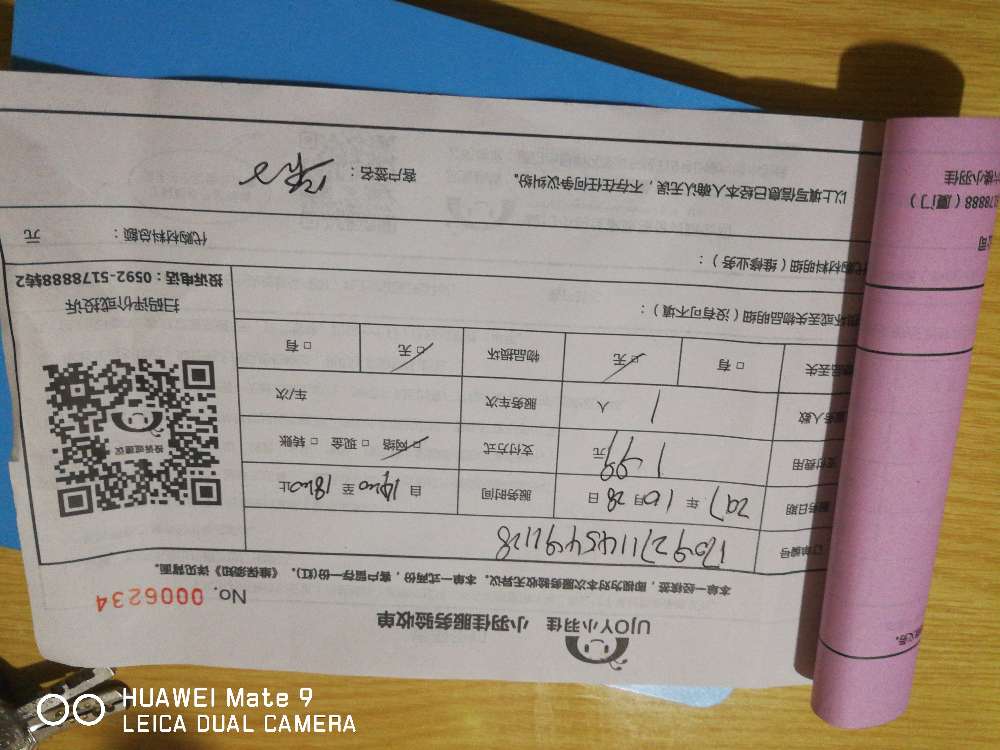 UJOY小羽佳 小羽佳服务验收单
No. 0006234
本单一经接签，即视为对本次服务验收无异议。本单一式两份，客户留存一份(红)。《维保须知》详见背面。
订单编号
服务日期 2017 年 10月 28 日 服务时间 自 14:00 至 18:00止
支付费用 199 元 支付方式 □网络 □现金 □转账
服务人数 1 人 服务车次 车/次
物品丢失 □有 □无 物品损坏 □无 □有
损坏或丢失物品明细（没有可不填）：
代购材料明细（维修业务）：
代购材料总额： 元
投诉或建议
扫码评价或投诉
投诉电话：0592-5178888转2
以上填写信息已经本人确认无误，不存在任何争议纠纷。 客户签名：
小羽佳
78888（厦门）
公司
HUAWEI Mate 9
LEICA DUAL CAMERA